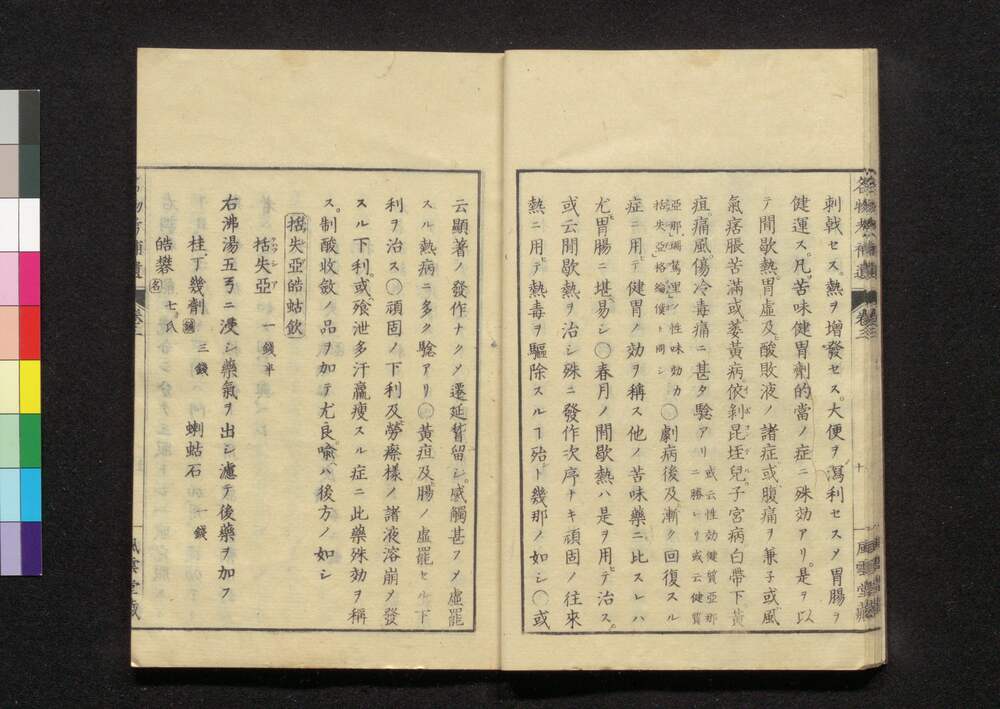 刺戟セス。熱ヲ增發セス。大便ヲ瀉利セスメ胃腸ヲ
健運ス。凡苦味健胃劑的當ノ症ニ殊効アリ。是ヲ以
テ間歇熱。胃虛及酸敗液ノ諸症或腹痛ヲ兼子或風
氣痞脹苦滿或萎黃病依剝昆垤兒子宮病白帶下黃
疸。痛風傷冷毒痛ニ甚タ驗アリ
或云性効健質亞那
ニ勝レリ或云健質
亞那瑞篤里ノ性味効力
括失亞格綸僕ト同シ
〇劇病後及漸ク回復スル
症ニ用テ健胃ノ効ヲ稱ス他ノ苦味藥ニ比スレハ
尤胃腸ニ堪易シ〇春月ノ間歇熱ハ是ヲ用テ治ス。
或云間歇熱ヲ治シ殊ニ發作次序ナキ頑固ノ往來
熱ニ用テ熱毒ヲ驅除スルヿ殆ト幾那ノ如シ〇或
名物考補遺
卷三
十
風雲堂藏
云顯著ノ發作ナクメ遷延暫留シ。感觸甚フメ虛罷
スル熱病ニ多ク驗アリ〇黃疸及腸ノ虛罷セル下
利ヲ治ス〇頑固ノ下利及勞瘵樣ノ諸液溶崩メ發
スル下利。或飧泄多汗羸瘦スル症ニ此藥殊効ヲ稱
ス。制酸收斂ノ品ヲ加テ尤良。喩ハ後方ノ如シ
括失亞皓蛄飲
括失亞 一錢半
右沸湯五弓ニ浸シ藥氣ヲ出シ濾テ後藥ヲ加フ
桂丁幾劑 三錢 蝲蛄石 一錢
皓礬 名 七。八